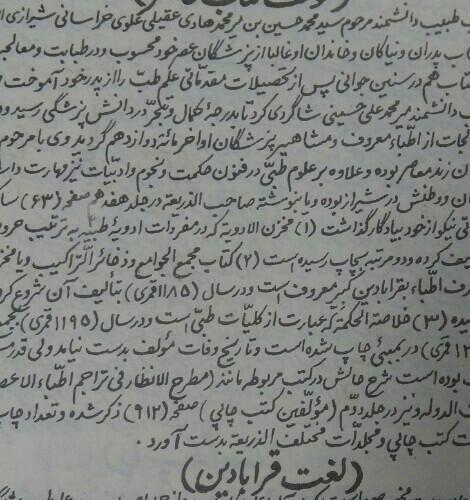 طبیب دانشمند مرحوم سید محمد حسین بن میر محمد هادی عقیلی علوی خراسانی شیرازی
پدران و نیاکان و خاندان او غالبا از پزشگان عصر خود محسوب و در طبابت و معالجه
کتاب هم در سنین جوانی پس از تحصیلات مقدماتی علم طب را از پدر خود آموخت و
دانشمند میر محمد علی حسینی شاگردی کرد تا بدرجهٔ کمال و تبحر در دانش پزشکی رسید و در
از اطباء معروف و مشاهیر پزشگان اواخر مائه دوازدهم گردید وی با مرحوم
زند معاصر بوده و علاوه بر علوم طبی در فنون حکمت و نجوم و ادبیات نیز مهارت داشته
و وطنش در شیراز بوده و بنا بنوشته صاحب الذریعة در جلد هفدهم صفحه (۶۳)
نیکو از خود بیادگار گذاشت (۱) مخزن الادویه که در مفردات ادویهٔ طبیه به ترتیب حروف
کرده و دو مرتبه بچاپ رسیده است (۲) کتاب مجمع الجوامع و ذخائر التراکیب و یا مخزن
اطباء بقرابادین کبیر معروف است و در سال (۱۱۸۵قمری) بتالیف آن شروع کرده
(۳) خلاصة الحکمة که عبارت از کلیات طبی است و در سال (۱۱۹۵ قمری)
قمری) در بمبئی چاپ شده است و تاریخ وفات مؤلف بدست نیامد ولی قدر
بوده است شرح حالش در کتب مربوطه مانند (مطرح الانظار فی تراجم اطباء الاعصار
الدوله و نیز در جلد دوم (مؤلفین کتب چاپی) صفحه (۹۱۲) ذکر شده و تعداد چاپ
کتب چاپی و مجلدات مختلف الذریعة بدست آورد .
(لغت قرابادین)